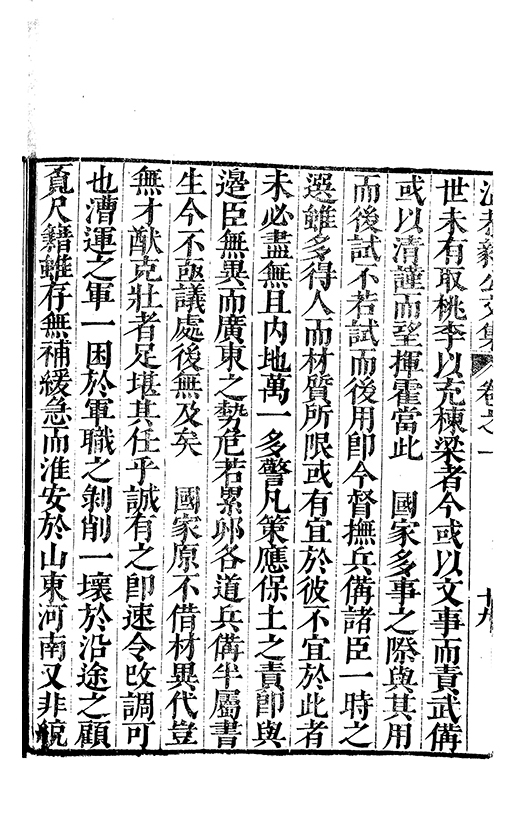 文集 卷之一 十九
世未有取桃李以充棟梁者今或以文事而責武備
或以清謹而望揮霍當此 國家多事之際與其用
而後試不若試而後用卽今督撫兵備諸臣一時之
選雖多得人而材質所限或有宜於彼不宜於此者
未必盡無且内地萬一多警凡策應保土之責卽與
邊臣無異而廣東之勢危若累卵各道兵備半屬書
生今不亟議處後無及矣 國家原不借材異代豈
無才猷克壯者足堪其任乎誠有之卽速令改調可
也漕運之軍一困於軍職之剝削一壞於沿途之顧
覔尺籍雖存無補緩急而淮安於山東河南又非統